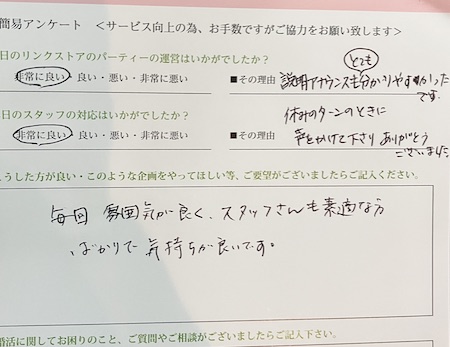 簡易アンケート <サービス向上の為、お手数ですがご協力をお願い致します>
日のリンクストアのパーティーの運営はいかがでしたか?
とても
非常に良い・良い・悪い・非常に悪い ■その理由 説明アナウンスも分かりやすかった
です.
日のスタッフの対応はいかがでしたか?
休みのターンのときに
非常に良い・良い・悪い・非常に悪い ■その理由 声をかけて下さり ありがとう
ございました
こうした方が良い・このような企画をやってほしい等、ご要望がございましたらご記入ください。
毎回 雰囲気が良く、スタッフさんも素適な方
ばかりで 気持ちが良いです。
婚活に関してお困りのこと、ご質問やご相談がございましたらご記入下さい。